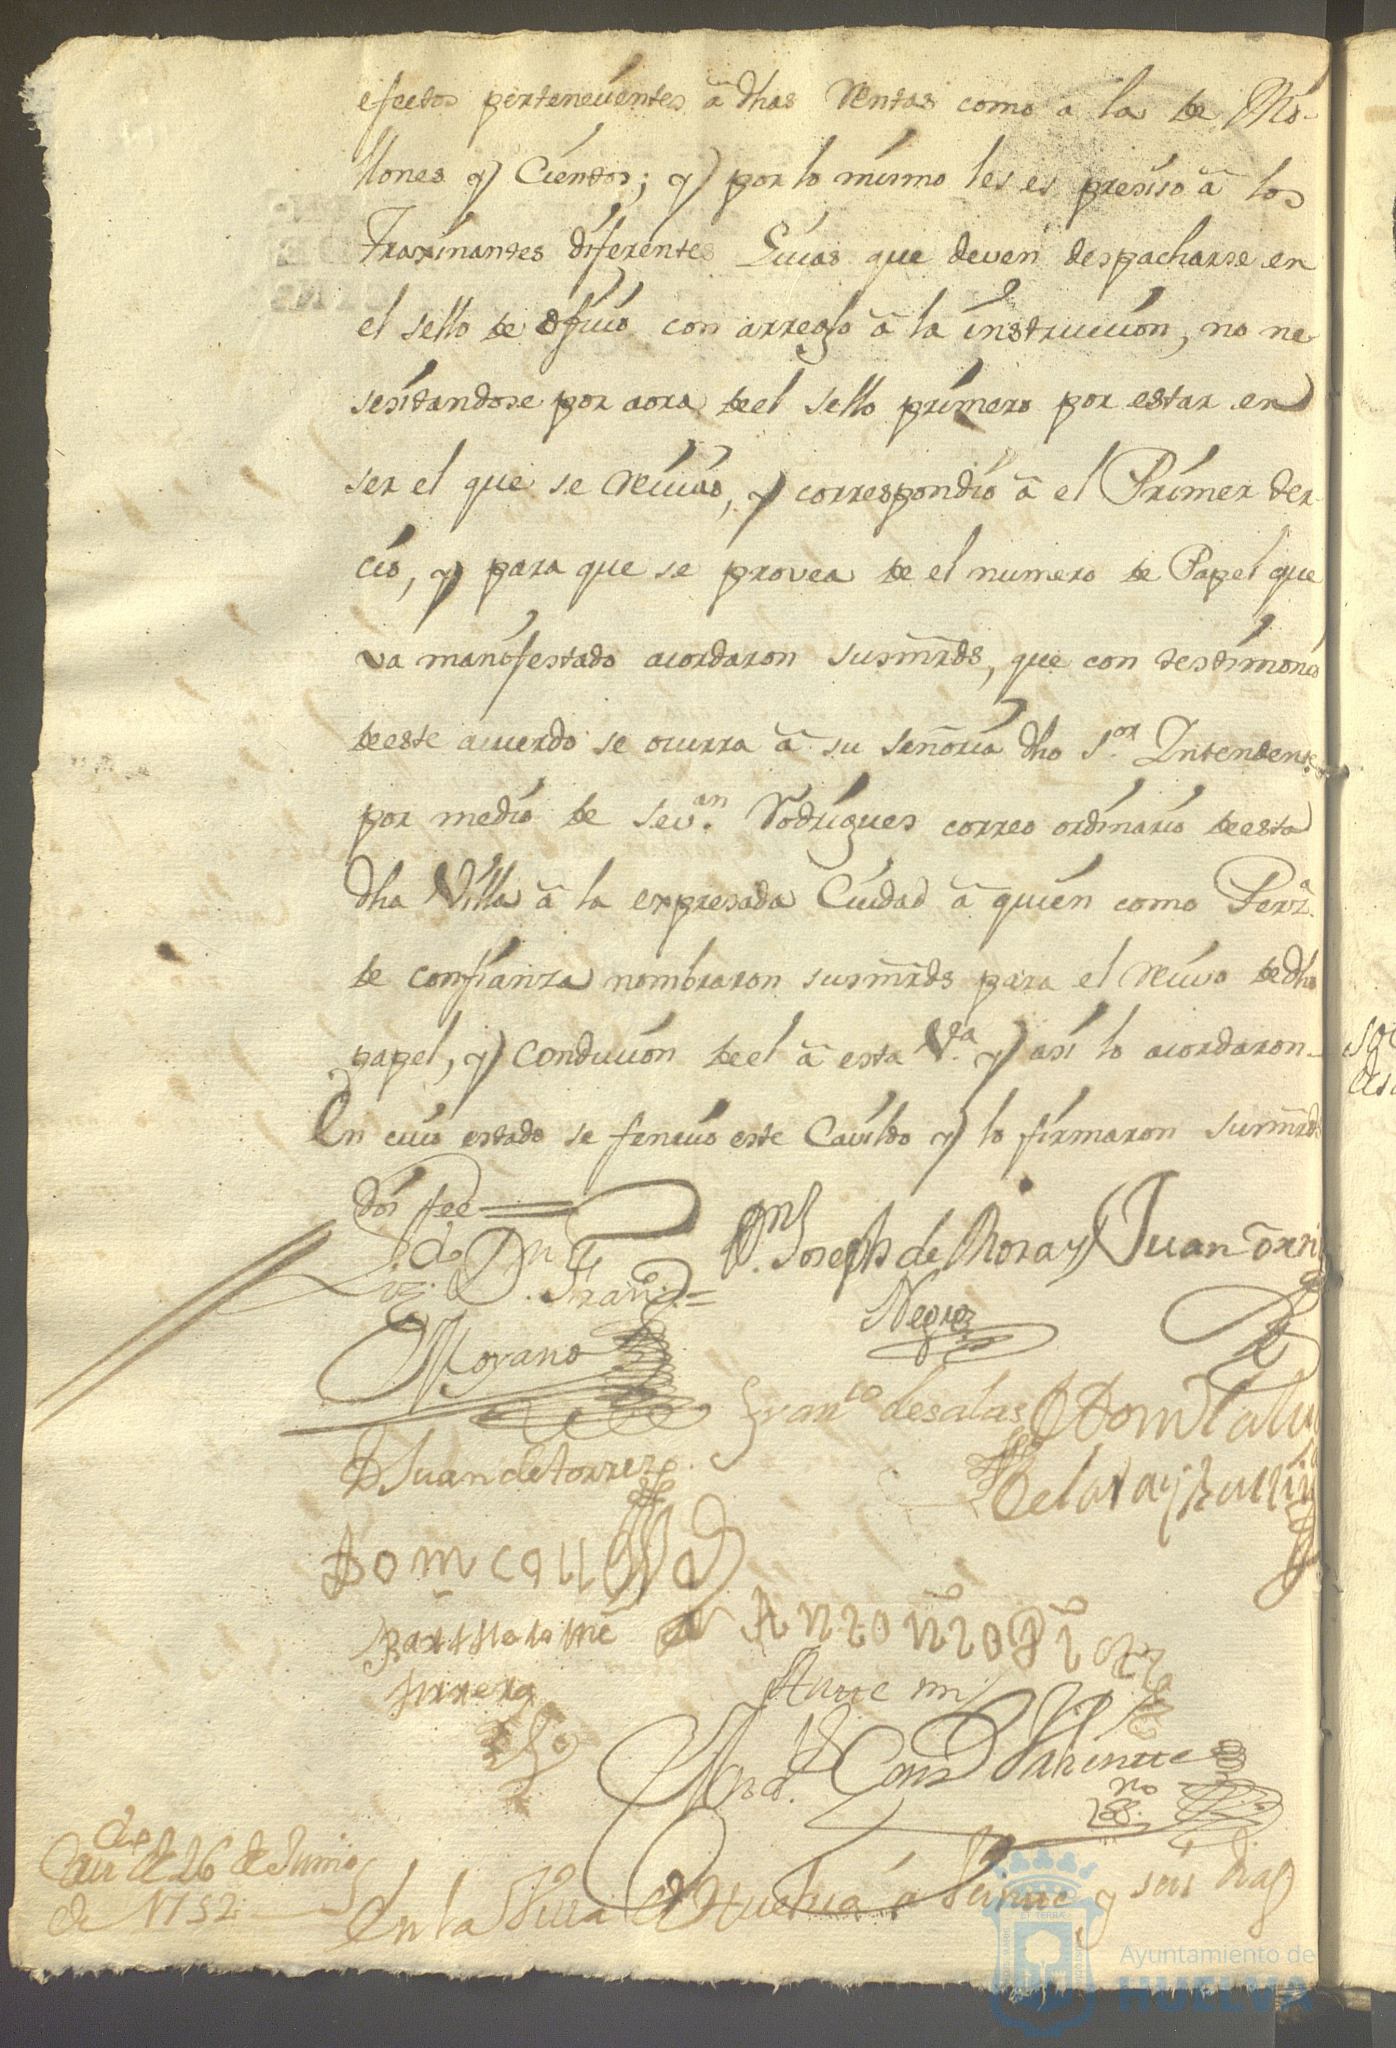 efectos pertenecientes â dhas Rentas como a la de Mi-
llones y Cientos; y por lo mismo les es presiso â los
Traxinantes diferentes Guias que deven despacharse en
el sello de oficio con arreglo â la instruccion, no ne
sesitandose por aora deel sello primero por estar en
ser el que se recivio, y correspondio â el Primer ter-
cio, y para que se provea de el numero de Papel que
va manifestado acordaron susmrds, que con testimonio
deeste acuerdo se ocurra â su señoria dho Sor. Intendente
por medio de Sevan. Rodrigues correo ordinario deesta
dha Villa â la expresada Ciudad â quien como Perza.
de confianza nombraron susmrds para el recivo dedho
papel, y conducion deel â esta Va. y asi lo acordaron
En cuio estado se fenecio este Cavildo y lo firmaron susmrds
doi fee
Lizdo. Dn. Franco.
Moyano
Dn. Joseph de Mora y
Negro
Juan
Franco de salas
D Juan de torres
Bartholome
herrera
Antonio
Antte mi
Cavdo de 26 de Junio
de 1752
En la Villa de Huelva â Veinte y seis dias
Ayuntamiento de
HUELVA